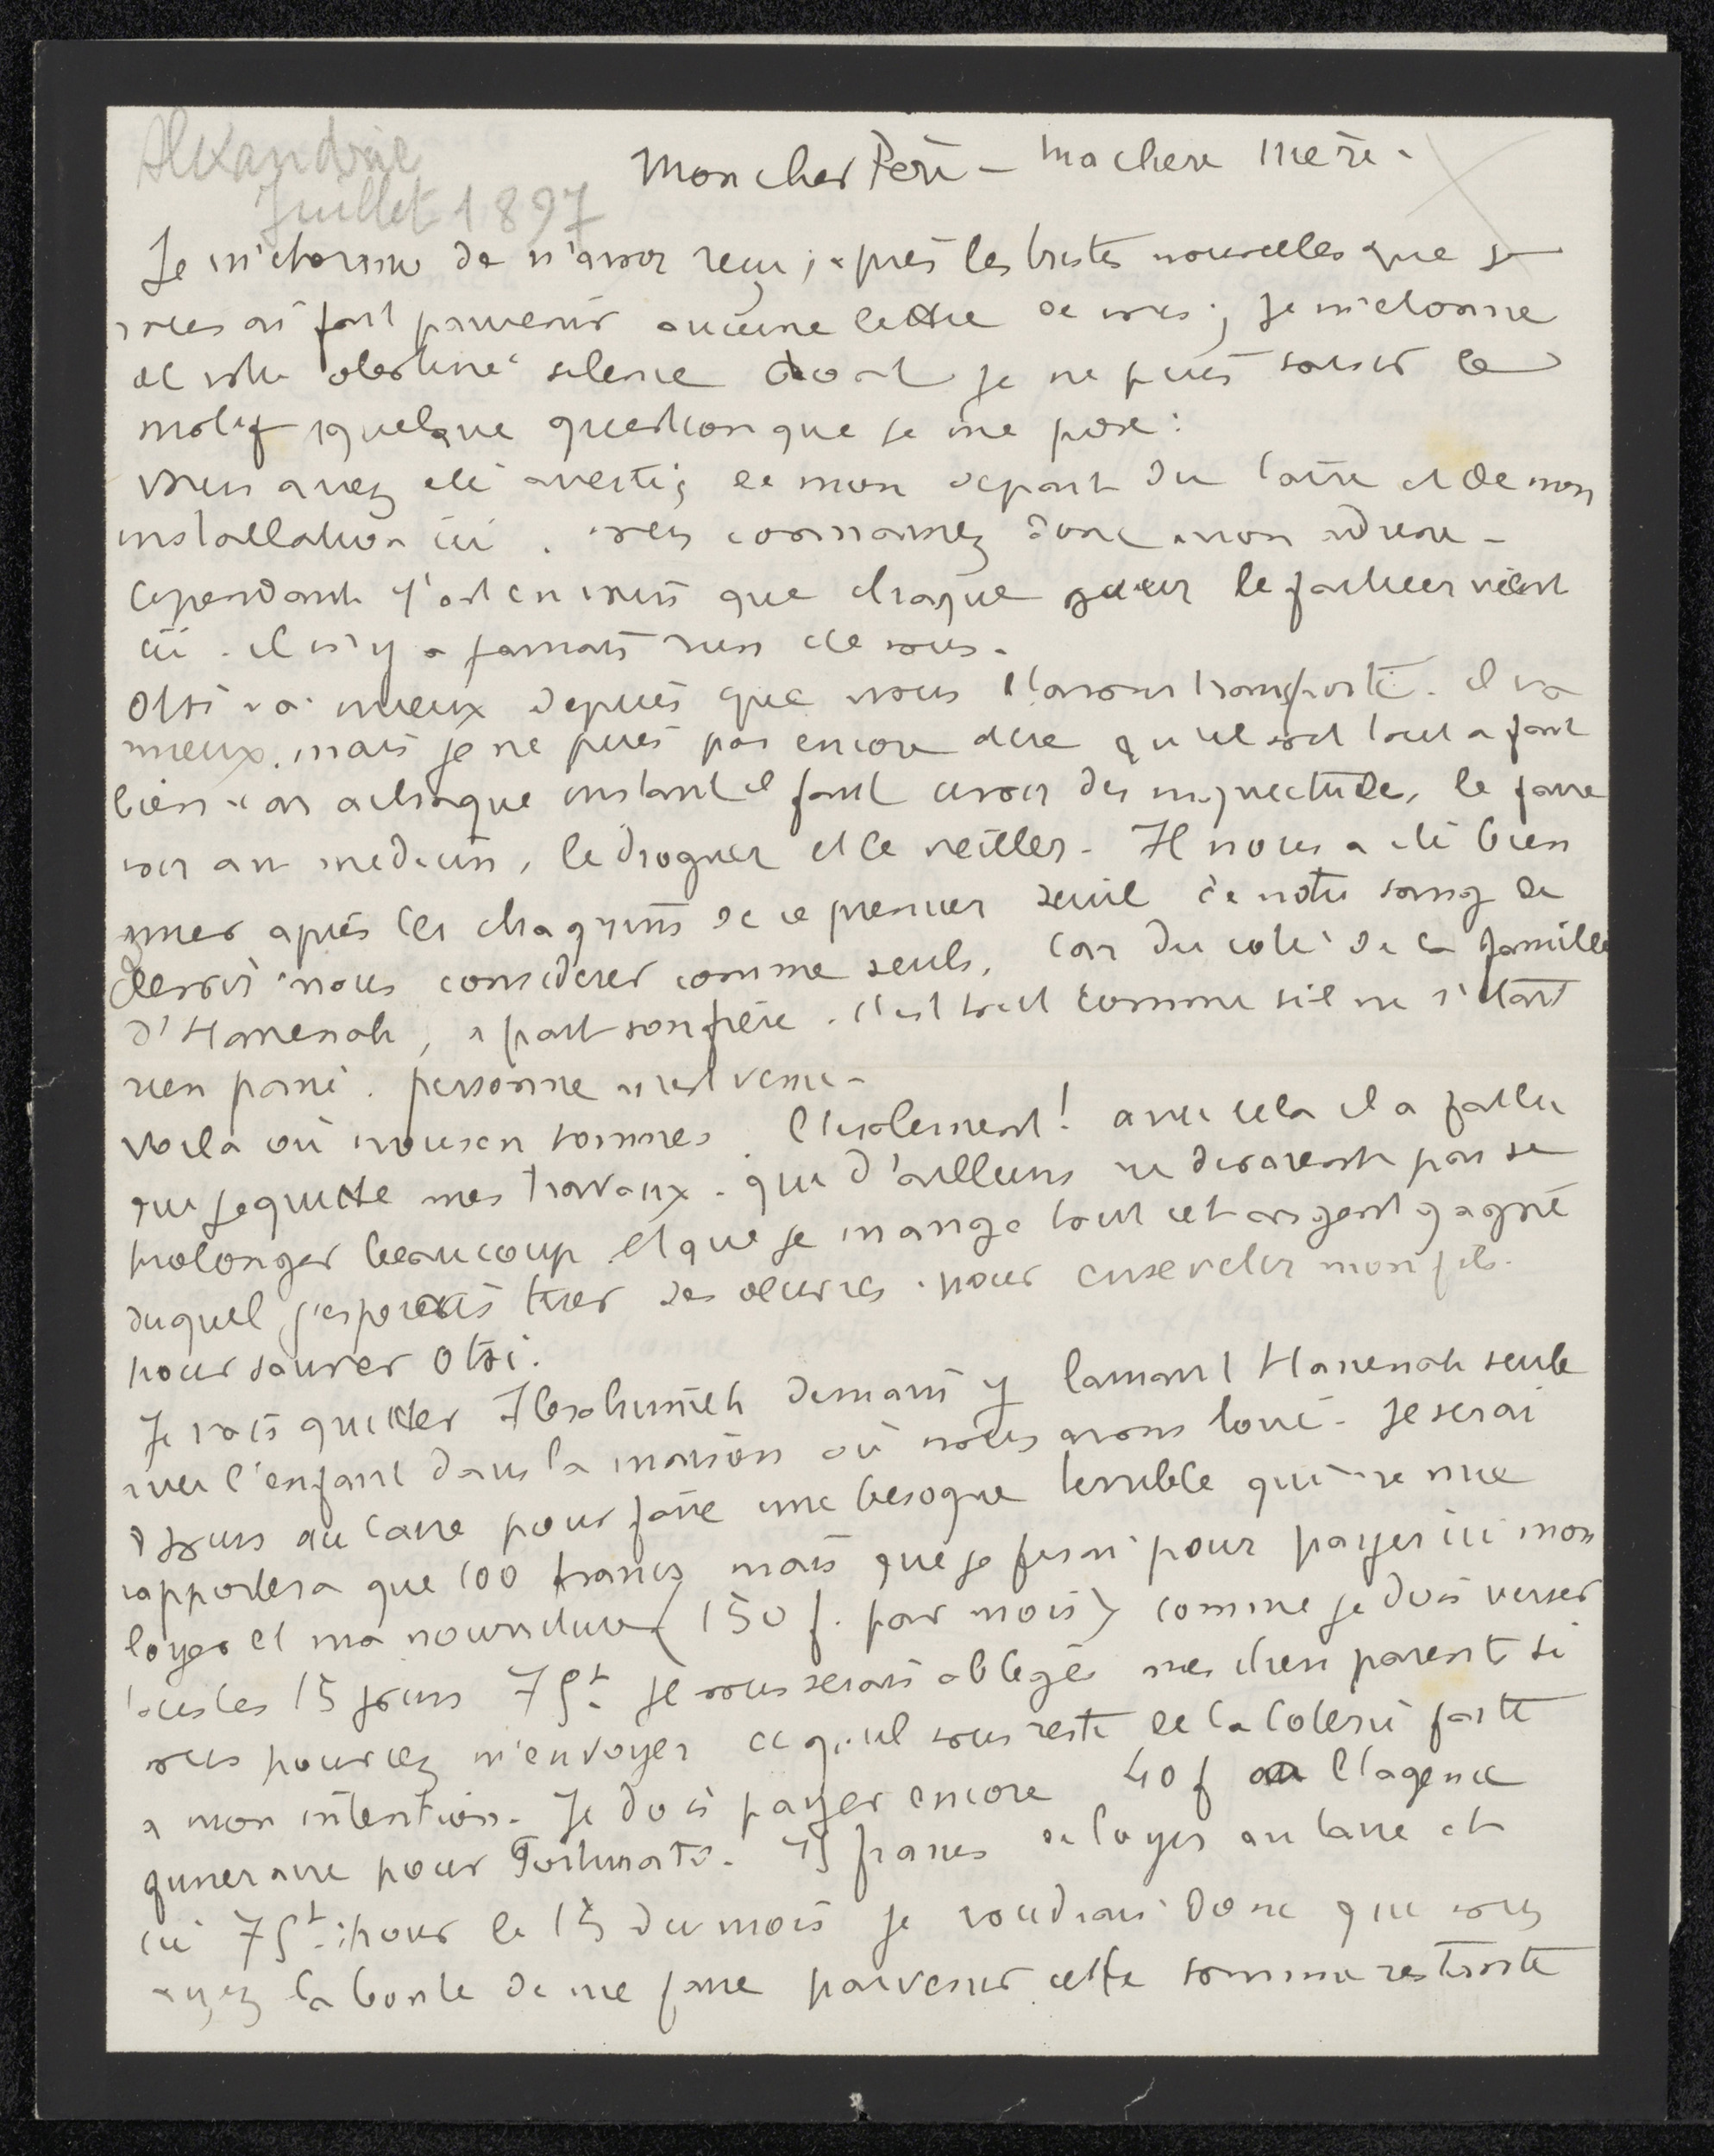 Alexandrie
Juillet 1897
Mon cher Père – ma chere Mère –
Je m'étonne de n'avoir reçu, après les tristes nouvelles que je
vous ai fait parvenir aucune lettre de vous ; je m'etonne
de votre obstiné silence dont je ne puis saisir le
motif quelque question que je me pose :
Vous avez été avertis de mon depart du Caire et de mon
installation ici . vous connaissez donc mon adresse –
Cependant j'ose en vain que chaque jour le facteur vient
ici . il n'y a jamais rien de vous .
Otsi va mieux depuis que nous l'avons transporté . il va
mieux . mais je ne puis pas encore dire qu'il soit tout a fait
bien car a chaque instant il faut avoir des inquietudes, le faire
voir au medecin, le droguer et le veiller – Il nous a été bien
amer après les chagrins de ce premier deuil de notre sang de
devoir nous considerer comme seuls, car du coté de la famille
d'Hanenah, a part son frère . c'est tout comme s'il ne s'était
rien passé . personne n'est venu –
Voila où nous en sommes . l'isolement ! avec cela il a fallu
que je quitte mes travaux . qui d'ailleurs ne devaient pas se
prolonger beaucoup et que je mange tout cet argent gagné
duquel j'esperais tirer des oeuvres . pour ensevelir mon fils .
pour sauver Otsi .
Je vais quitter Ibrahimieh demain y laissant Hanenah seule
avec l'enfant dans la maison où nous avons loué – Je serai
8 jours au Caire pour faire une besogne terrible qui ne me
rapportera que 100 francs mais que je ferai pour payer ici mon
loyer et ma nourriture (150 f. par mois) comme je dois verser
tous les 15 jours 75f. je vous serais obligé mes chers parents si
vous pouviez m'envoyer ce qu'il vous reste de la loterie faite
a mon intention . Je dois payer encore 40 f a l'agence
funeraire pour Fortunato . 45 francs de loyer au Caire et
ici 75f. pour le 15 du mois je voudrais donc que vous
ayez la bonte de me faire parvenir cette somme restante